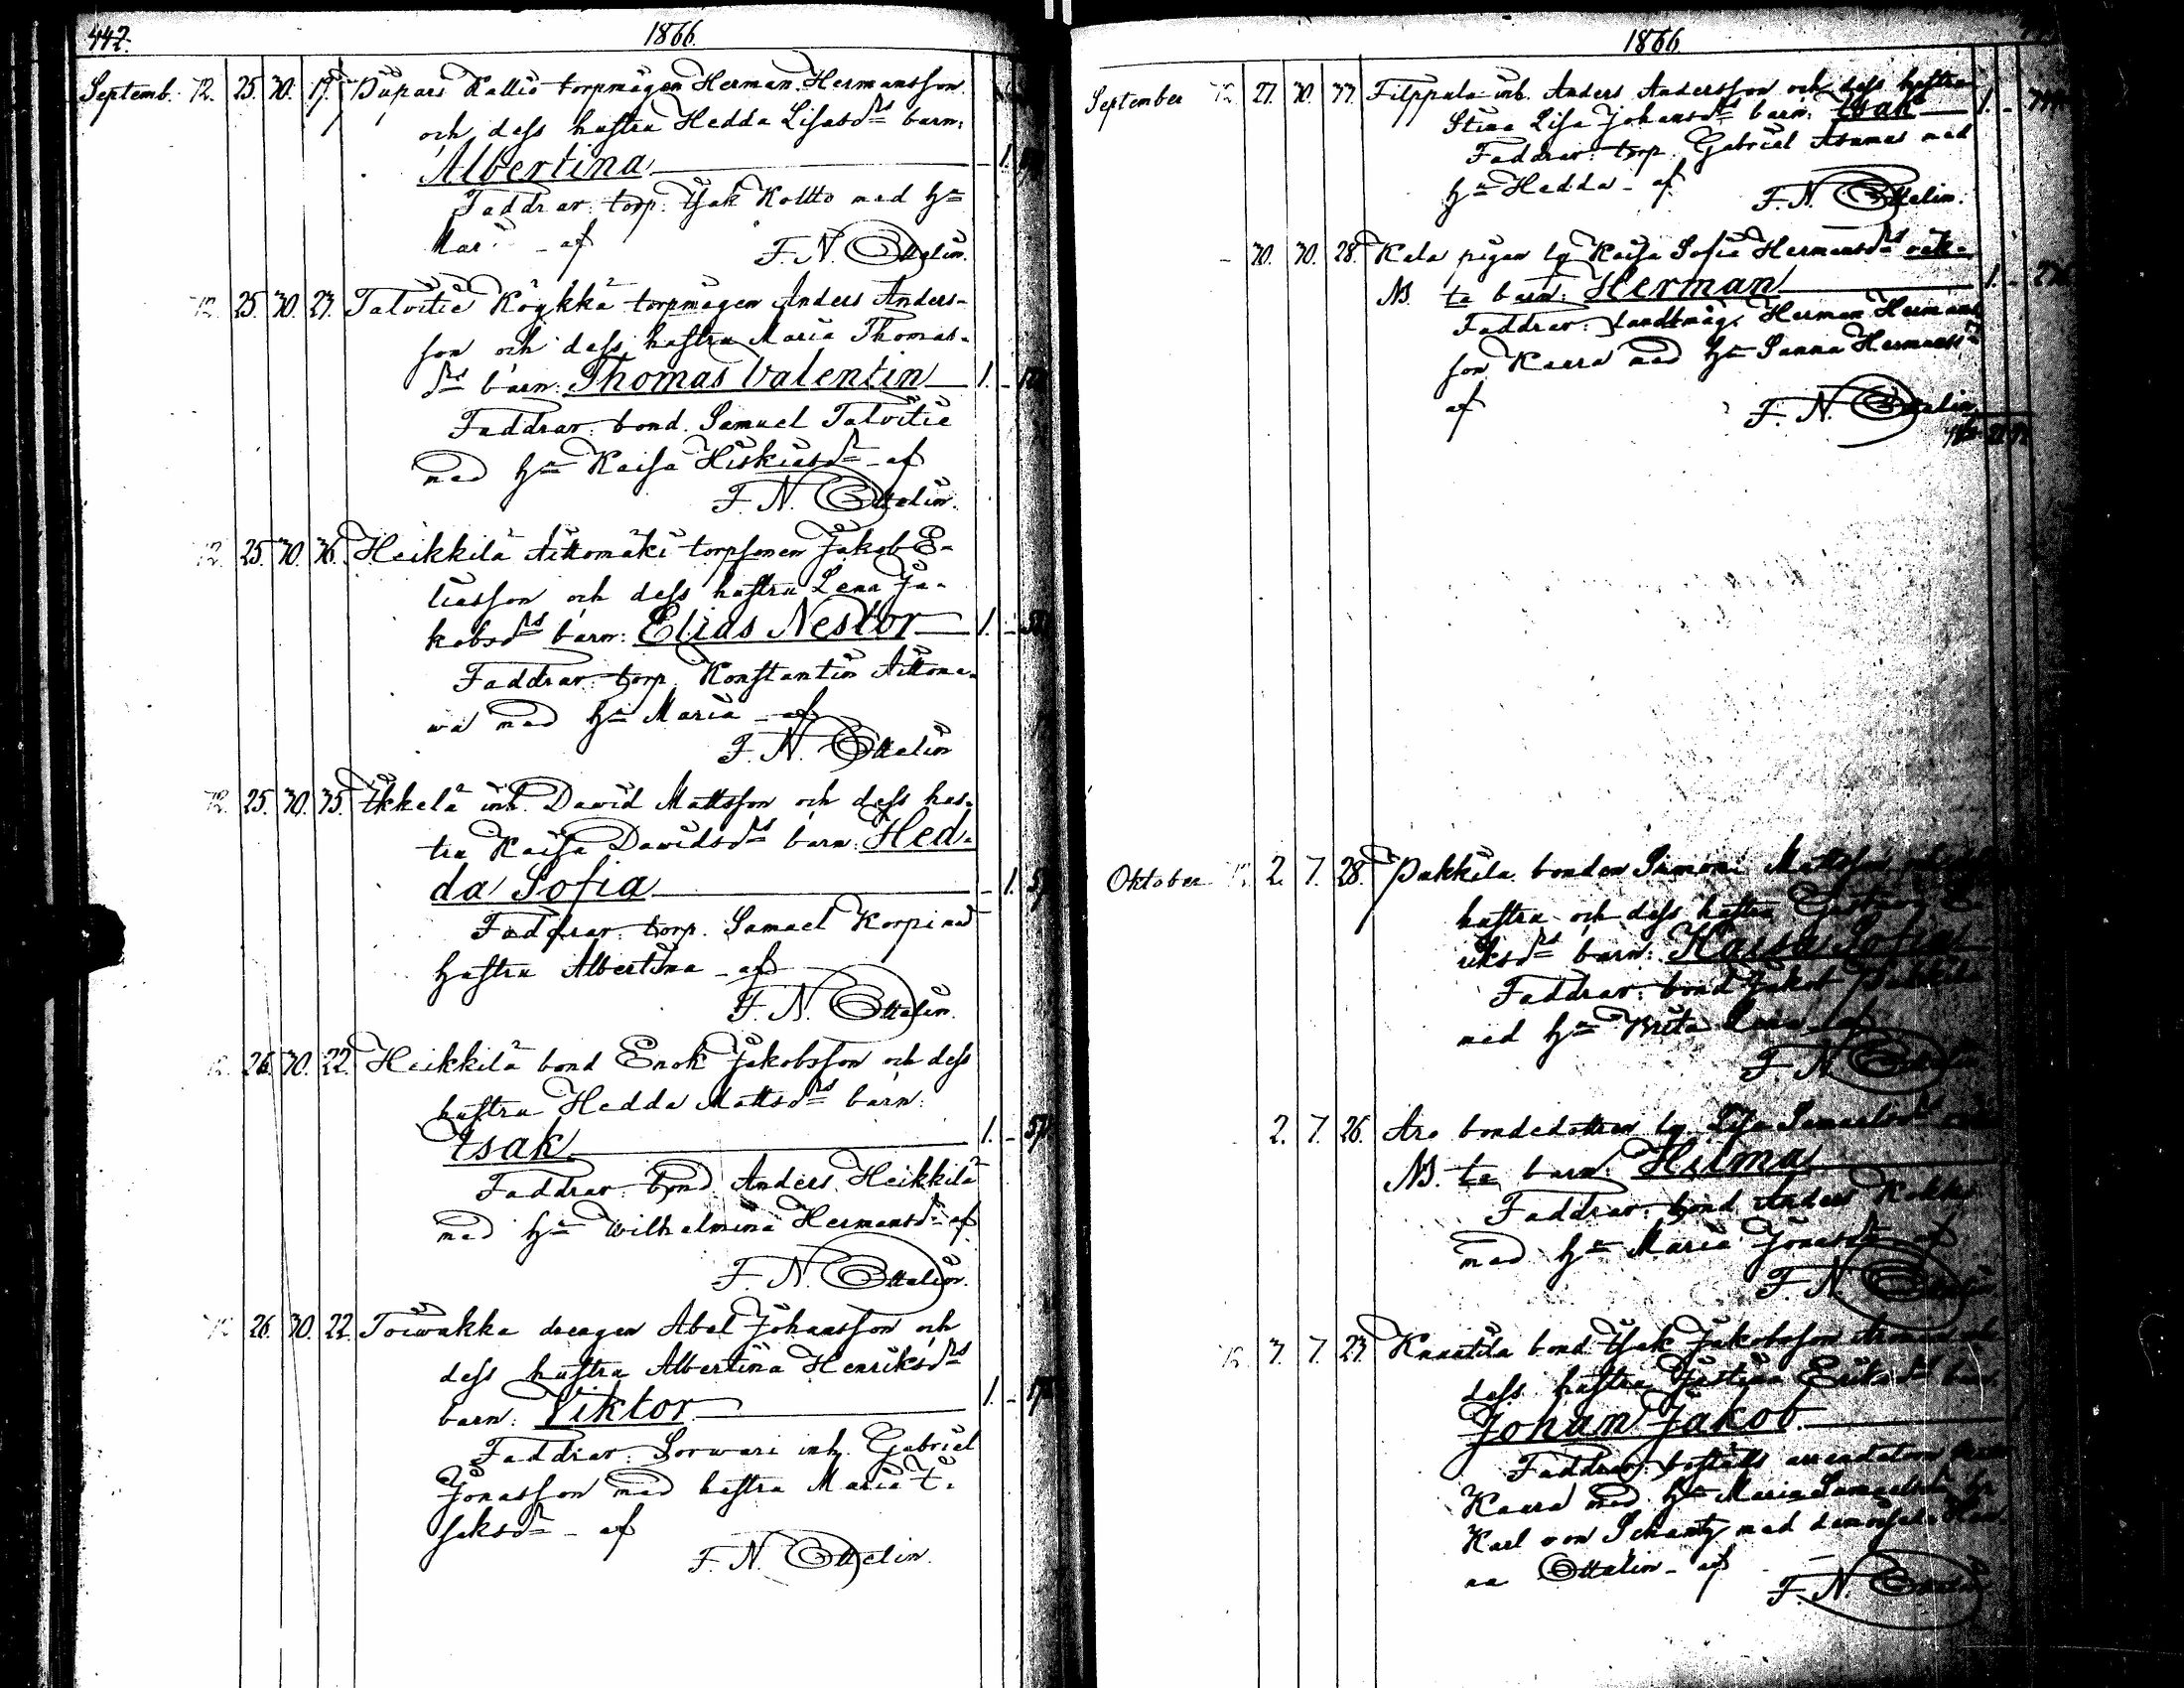 442.
1866.
Septemb. 12. 25. 30. 17. Kallio torpmågen Herman Hermansson
och dess hustru Hedda Lisasdrs barn:
Albertina 1.
Faddrar: torp. Isak Koltto med hu
Mari - af F. N. Ottelin.
12. 25. 30. 23. Talvitie Köykkä torpmågen Anders Anders-
son och dess hustru Maria Thomas-
drs barn: Thomas Valentin 1.
Faddrar: bond. Samuel Talvitie
med hu Kaisa Hiskiasdr - af
F. N. Ottelin.
12. 25. 30. 36. Heikkilä Aittomäki torpsonen Jakob E-
liasson och dess hustru Lena Ja-
kobsdrs barn: Elias Nestor 1.
Faddrar: torp. Konstantin
med hu Maria - af
F. N. Ottelin
12. 25. 30. 35. Ikkelä inh. David Mattsson och dess hus-
tru Kaisa Davidsdrs barn: Hed-
da Sofia 1. 57
Faddrar: torp. Samuel Korpi med
hustru Albertina - af
F. N. Ottelin.
12. 26. 30. 22. Heikkilä bond Enok Jakobsson och dess
hustru Hedda Mattsdrs barn:
Isak 1. 57
Faddrar: bond Anders Heikkilä
med hu Wilhelmina Hermansdr af
F. N. Ottelin.
12. 26. 30. 22. Toiwakka drengen Abel Johansson och
dess hustru Albertina Henriksdrs
barn: Viktor 1.
Faddrar: Sorwari inh. Gabriel
Jonasson med hustru Maria I-
saksdr - af
F. N. Ottelin.
1866
September 12. 27. 30. 37. Filppula inh. Anders Andersson och dess hustru
Stina Lisa Johansdrs barn: Isak 1.
Faddrar: torp. Gabriel med
hu Hedda - af
F. N. Ottelin.
30. 30. 28. Kala pigan lg Kaisa Sofia Hermansdrs oäk-
NB. ta barn: Herman 1.
Faddrar: Landtmäg. Herman Hermans-
son Kaara med hu Sanna Hermansdr
af F. N. Ottelin
Oktober 12. 2. 7. 28. Pukkila bonden Simon Mattsson
hustru och dess hustru
riksdrs barn: Kaisa Sofia
Faddrar: bond Jakob Pukkila
med hu Brita Lena af
F. N. Ottelin
2. 7. 26. Aro bondedottren lg Lisa Samuelsdrs
NB. ta barn: Hilma
Faddrar: bond Anders Kokko
med hu Maria Jonasdr af
F. N. Ottelin
12. 3. 7. 23. Knaatila bond Isak Jakobsson och
dess hustru Justina Eriksdrs barn
Johan Jakob
Faddrar: boställs arrendatorn
Kaara med hu Maria Samuelsdr hr
Karl von Schantz med demoiselle Han-
na Ottelin - af
F. N. Ottelin